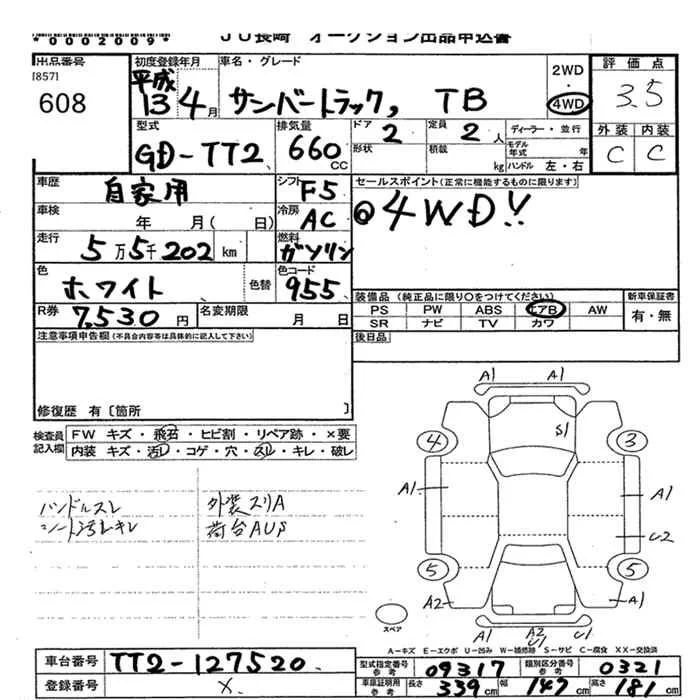 *0002009*
JU長崎 オークション出品申込書
出品番号
[857]
608
初度登録年月
平成
13 4月
車名・グレード
サンバートラック, TB
2WD
・
4WD
評価点
3.5
外装 内装
C C
型式
GD-TT2
排気量
660 CC
ドア 2
形状
定員 2人
積載 kg
ディーラー・並行
モデル年式 年
ハンドル 左・右
車歴
自家用
シフト F5
車検 年 月( 日)
冷房 AC
走行
5万5千202 km
燃料
ガソリン
色
ホワイト
色替
色コード
955
R券
7,530円
名変期限
月 日
セールスポイント(正常に機能するものに限ります)
◎4WD!!
装備品 (純正品に限り○をつけてください) 新車保証書
PS PW ABS エアB AW 有・無
SR ナビ TV カワ
後日品
注意事項申告欄(不具合内容等は具体的に記入して下さい)
修復歴 有〔箇所 〕
検査員
記入欄
FW キズ・飛石・ヒビ割・リペア跡・×要
内装 キズ・汚レ・コゲ・穴・スレ・キレ・破レ
ハンドルスレ 外装スリA
シート汚レキレ 荷台AUP
A1 A1
S1
4 3
A1 A1
U2
5 5
A2 A1
A1 A2 U1
U1
スペア
A-キズ E-エクボ U-凹み W-補修跡 S-サビ C-腐食 XX-交換済
車台番号 TT2-127520
登録番号 ×
型式指定番号 参考 09317 類別区分番号 参考 0321
車庫証明用 参考 長さ 339cm 幅 147cm 高さ 181cm